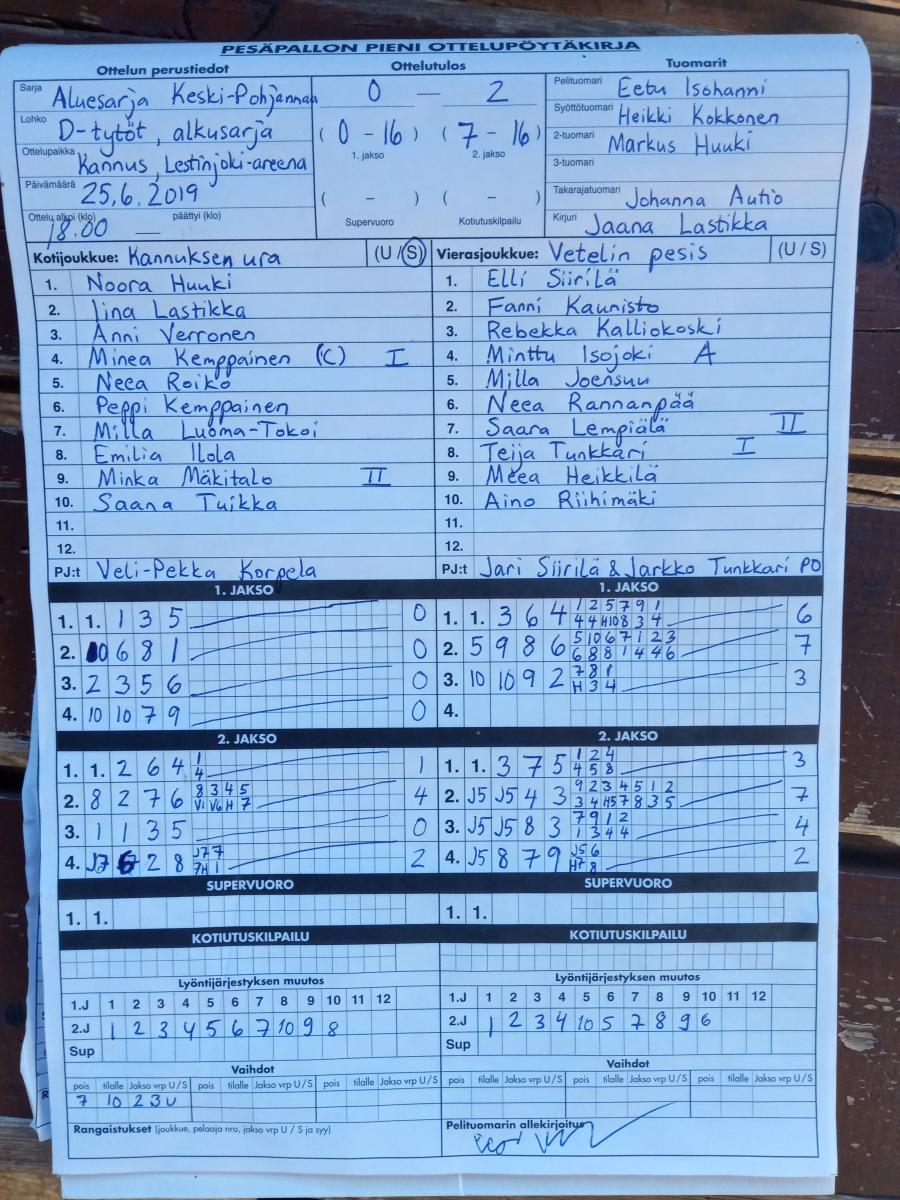 PESÄPALLON PIENI OTTELUPÖYTÄKIRJA
Ottelun perustiedot Ottelutulos Tuomarit
Sarja Aluesarja Keski-Pohjanmaa 0 — 2 Pelituomari Eetu Isohanni
Lohko D-tytöt, alkusarja (0 - 16) (7 - 16) Syöttötuomari Heikki Kokkonen
1. jakso 2. jakso
Ottelupaikka Kannus, Lestinjoki-areena 2-tuomari Markus Huuki
3-tuomari
Päivämäärä 25.6.2019 ( - ) ( - ) Takarajatuomari Johanna Autio
Ottelu alkoi (klo) 18.00 — päättyi (klo) Supervuoro Kotiutuskilpailu Kirjuri Jaana Lastikka
Kotijoukkue: Kannuksen ura (U / S) Vierasjoukkue: Vetelin pesis (U / S)
1. Noora Huuki 1. Elli Siirilä
2. Iina Lastikka 2. Fanni Kaunisto
3. Anni Verronen 3. Rebekka Kalliokoski
4. Minea Kemppainen (C) I 4. Minttu Isojoki A
5. Neea Roiko 5. Milla Joensuu
6. Peppi Kemppainen 6. Neea Rannanpää
7. Milla Luoma-Tokoi 7. Saara Lempiälä II
8. Emilia Ilola 8. Teija Tunkkari I
9. Minka Mäkitalo II 9. Meea Heikkilä
10. Saana Tuikka 10. Aino Riihimäki
11. 11.
12. 12.
PJ:t Veli-Pekka Korpela PJ:t Jari Siirilä & Jarkko Tunkkari PO
1. JAKSO 1. JAKSO
1. 1. 1 3 5 0 1. 1. 3 6 4 1 2 5 7 9 1 6
4 4 H10 8 3 4
2. 0 6 8 1 0 2. 5 9 8 6 5 10 6 7 1 2 3 7
6 8 8 1 4 4 6
3. 2 3 5 6 0 3. 10 10 9 2 7 8 1 3
H 3 4
4. 10 10 7 9 0 4.
2. JAKSO 2. JAKSO
1. 1. 2 6 4 1 1 1. 1. 3 7 5 1 2 4 3
4 4 5 8
2. 8 2 7 6 8 3 4 5 4 2. J5 J5 4 3 9 2 3 4 5 1 2 7
V1 V6 H 7 3 4 H5 7 8 3 5
3. 1 1 3 5 0 3. J5 J5 8 3 7 9 1 2 4
1 3 4 4
4. J7 6 2 8 J7 7 2 4. J5 8 7 9 J5 6 2
7H 1 H7 8
SUPERVUORO SUPERVUORO
1. 1. 1. 1.
KOTIUTUSKILPAILU KOTIUTUSKILPAILU
Lyöntijärjestyksen muutos Lyöntijärjestyksen muutos
1.J 1 2 3 4 5 6 7 8 9 10 11 12 1.J 1 2 3 4 5 6 7 8 9 10 11 12
2.J 1 2 3 4 5 6 7 10 9 8 2.J 1 2 3 4 10 5 7 8 9 6
Sup Sup
Vaihdot Vaihdot
pois tilalle Jakso vrp U / S pois tilalle Jakso vrp U / S pois tilalle Jakso vrp U / S pois tilalle Jakso vrp U / S
7 10 2 3 U
Rangaistukset (joukkue, pelaaja nro, jakso vrp U / S ja syy) Pelituomarin allekirjoitus